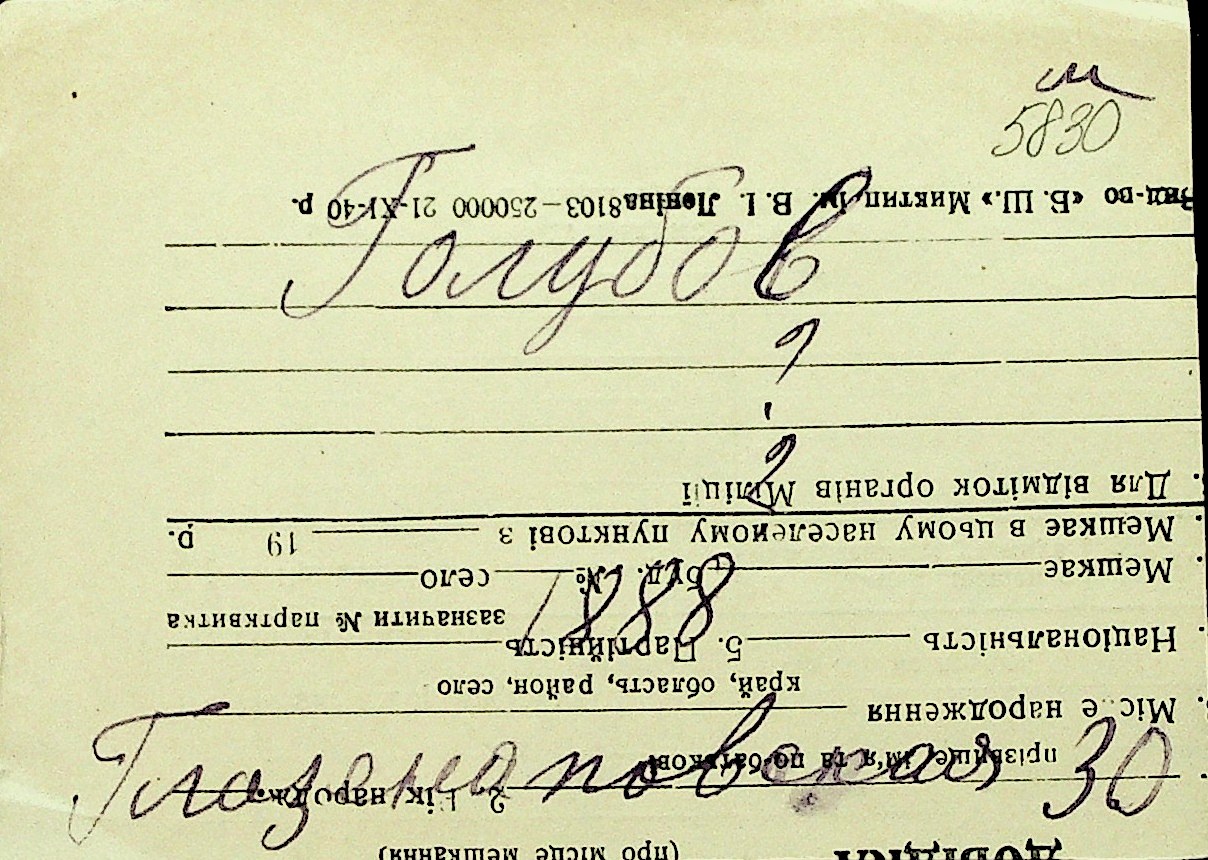 5830
Голубов
?
?
1888
Глазенаповская 30
ДОВІДКА
(про місце мешкання)
2. Рік народж.
прізвище, ім'я та по-батькові
Місце народження
край, область, район, село
Національність 5. Партійність
зазначити № партквитка
Мешкає буд. № село
Мешкає в цьому населеному пунктові з 19 р.
Для відміток органів Міліції
Вид-во «Б. Ш.» Миктип ім. В. І. Леніна 8103—250000 21-XI-40 р.